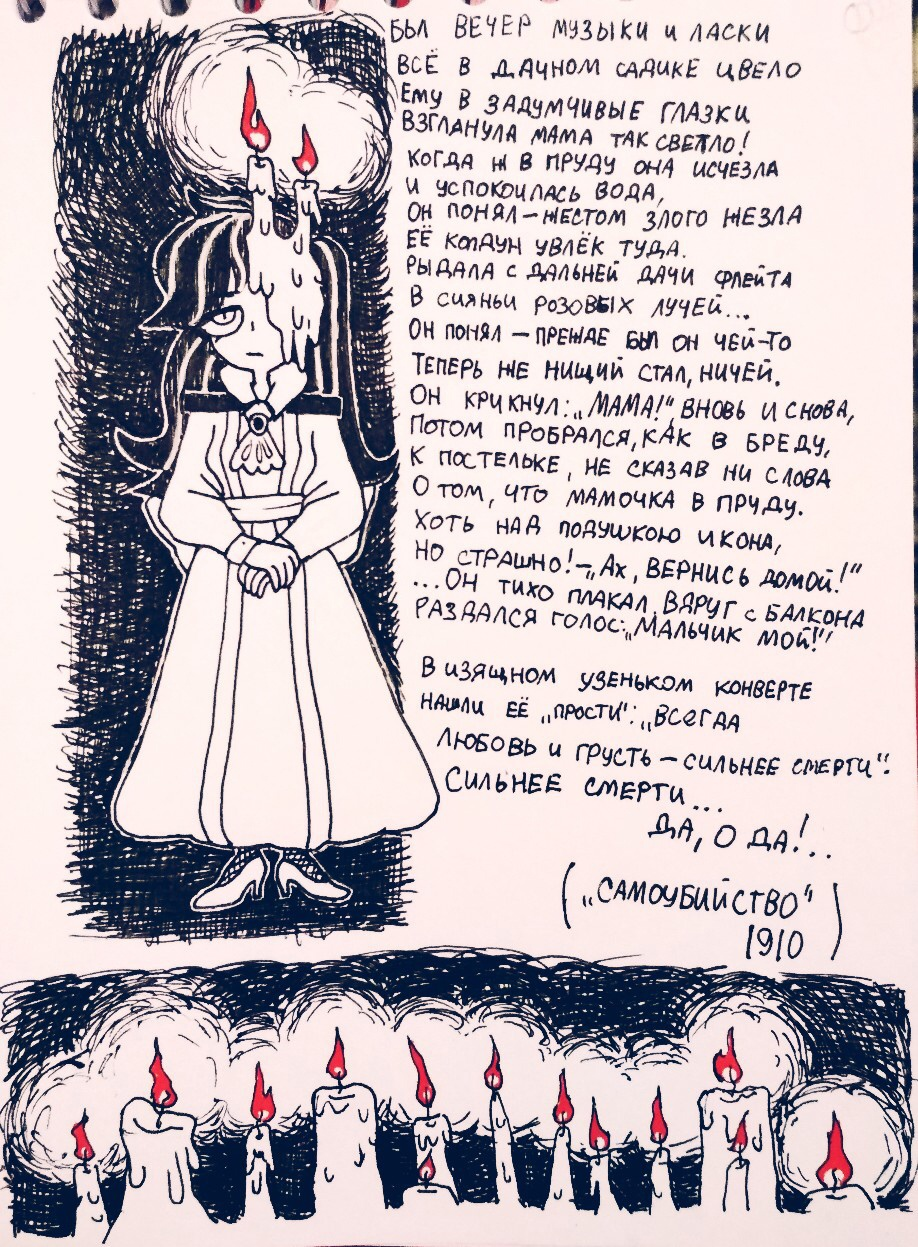 БЫЛ ВЕЧЕР МУЗЫКИ И ЛАСКИ
ВСЁ В ДАЧНОМ САДИКЕ ЦВЕЛО
ЕМУ В ЗАДУМЧИВЫЕ ГЛАЗКИ
ВЗГЛЯНУЛА МАМА ТАК СВЕТЛО!
КОГДА Ж В ПРУДУ ОНА ИСЧЕЗЛА
И УСПОКОИЛАСЬ ВОДА,
ОН ПОНЯЛ – ЖЕСТОМ ЗЛОГО ЖЕЗЛА
ЕЁ КОЛДУН УВЛЁК ТУДА.
РЫДАЛА С ДАЛЬНЕЙ ДАЧИ ФЛЕЙТА
В СИЯНЬИ РОЗОВЫХ ЛУЧЕЙ...
ОН ПОНЯЛ – ПРЕЖДЕ БЫЛ ОН ЧЕЙ-ТО
ТЕПЕРЬ ЖЕ НИЩИЙ СТАЛ, НИЧЕЙ.
ОН КРИКНУЛ: „МАМА!" ВНОВЬ И СНОВА,
ПОТОМ ПРОБРАЛСЯ, КАК В БРЕДУ,
К ПОСТЕЛЬКЕ, НЕ СКАЗАВ НИ СЛОВА
О ТОМ, ЧТО МАМОЧКА В ПРУДУ.
ХОТЬ НАД ПОДУШКОЮ ИКОНА,
НО СТРАШНО! – „АХ, ВЕРНИСЬ ДОМОЙ!"
...ОН ТИХО ПЛАКАЛ, ВДРУГ С БАЛКОНА
РАЗДАЛСЯ ГОЛОС: „МАЛЬЧИК МОЙ!"
В ИЗЯЩНОМ УЗЕНЬКОМ КОНВЕРТЕ
НАШЛИ ЕЁ „ПРОСТИ": „ВСЕГДА
ЛЮБОВЬ И ГРУСТЬ – СИЛЬНЕЕ СМЕРТИ".
СИЛЬНЕЕ СМЕРТИ...
ДА, О ДА!..
(„САМОУБИЙСТВО"
1910)